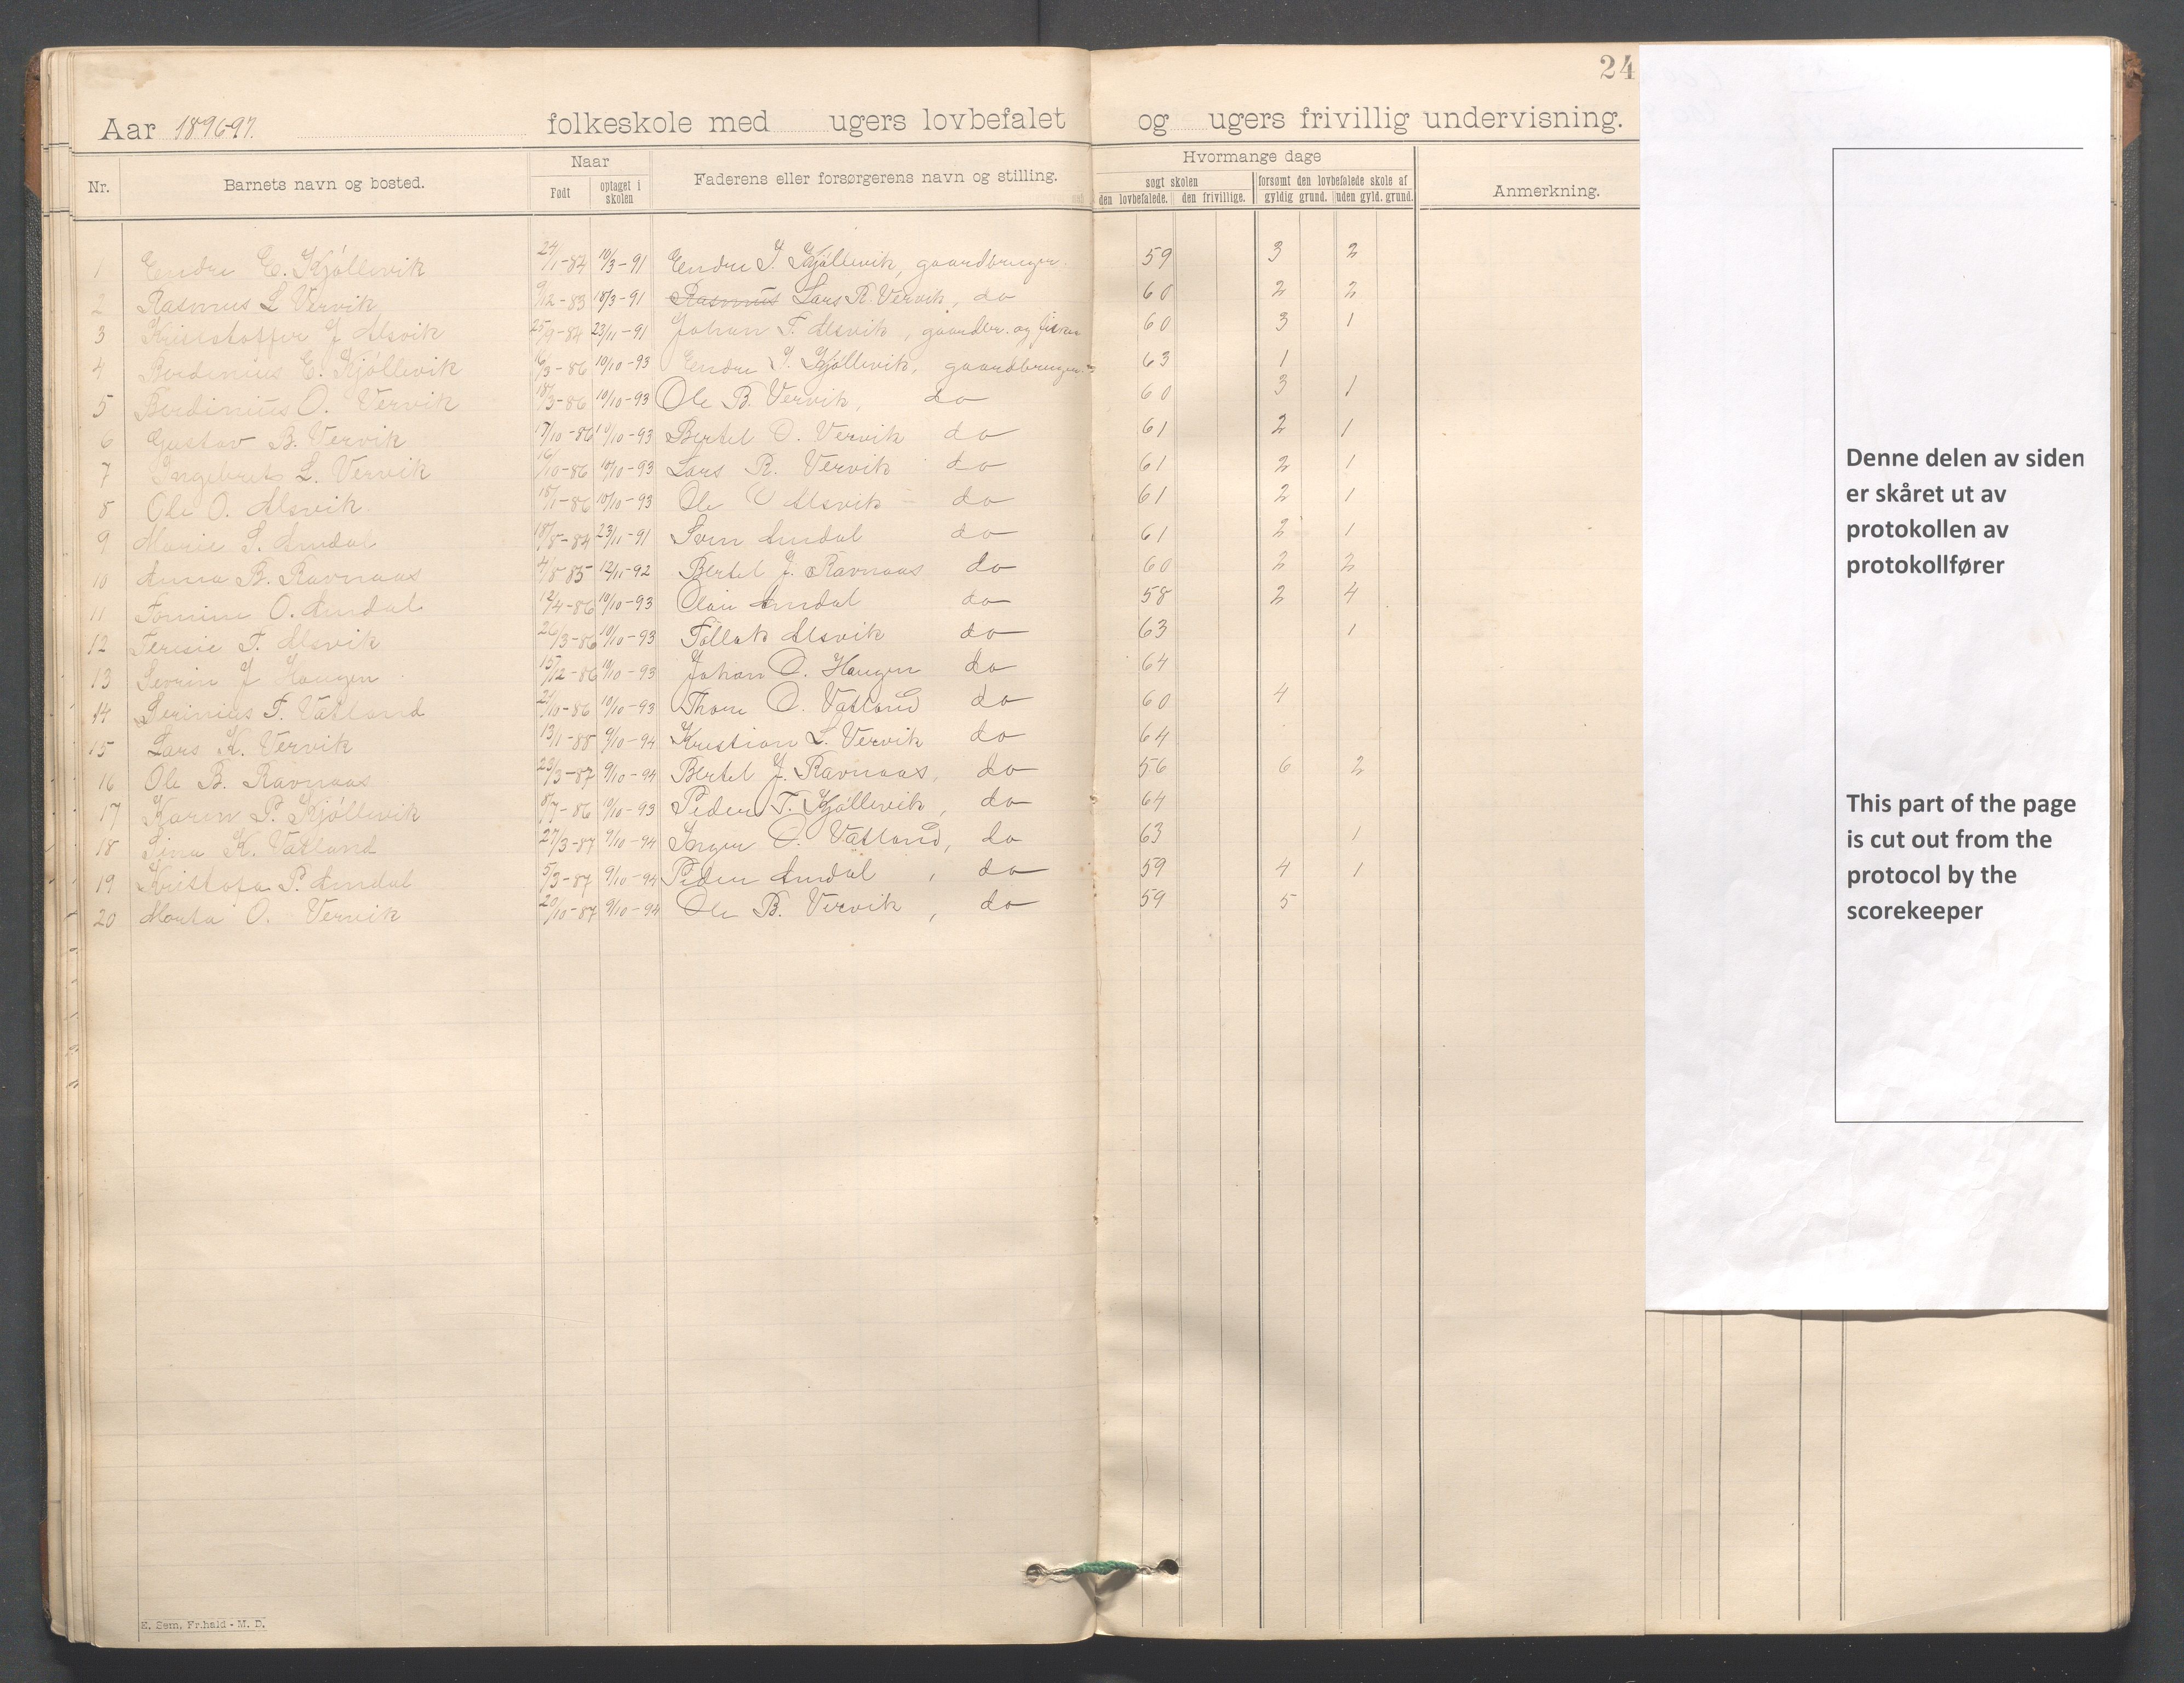 24
Aar 1896-97. folkeskole med ugers lovbefalet og ugers frivillig undervisning.
Nr. Barnets navn og bosted. Naar Født optaget i skolen Faderens eller forsørgerens navn og stilling. Hvormange dage søgt skolen den lovbefalede. den frivillige. forsømt den lovbefalede skole af gyldig grund. uden gyld. grund. Anmerkning.
1 Endre E. Kjöllevik 24/1-84 10/3-91 Endre I. Kjöllevik, gaardbruger 59 3 2
2 Rasmus L Vervik 9/12-83 18/3-91 Rasmus Lars R. Vervik, do 60 2 2
3 Kristoffer J Alsvik 25/9-84 23/11-91 Johan T. Alsvik, gaardbr. og fisker 60 3 1
4 E. Kjöllevik 16/3-86 10/10-93 Endre I. Kjöllevik, gaardbruger 63 1
5 Berdinius O. Vervik 18/3-86 10/10-93 Ole B. Vervik, do 60 3 1
6 Gustav B. Vervik 17/10-86 10/10-93 Bertel O. Vervik do 61 2 1
7 Ingebret L. Vervik 16/10-86 10/10-93 Lars R. Vervik do 61 2 1
8 Ole O. Alsvik 18/1-86 10/10-93 Ole O Alsvik do 61 2 1
9 Marie S. Amdal 18/8-84 23/11-91 Sven Amdal do 61 2 1
10 Anna B. Ravnaas 4/8-85 12/11-92 Bertel J. Ravnaas do 60 2 2
11 O. Amdal 12/4-86 10/10-93 Amdal do 58 2 4
12 Teresie T. Alsvik 26/3-86 10/10-93 Tollak Alsvik do 63 1
13 Sevrin J Haugen 15/12-86 10/10-93 Johan O. Haugen do 64
14 Serinius T. Vatland 21/10-86 10/10-93 Thore O. Vatland do 60 4
15 Lars K. Vervik 13/1-88 9/10-94 Kristian L. Vervik do 64
16 Ole B. Ravnaas 23/3-87 9/10-94 Bertel J. Ravnaas, do 56 6 2
17 Karen P. Kjöllevik 8/7-86 10/10-93 Peder T. Kjöllevik, do 64
18 Sina K. Vatland 27/3-87 9/10-94 Inger O. Vatland, do 63 1
19 Kristofa P. Amdal 5/3-87 9/10-94 Peder Amdal, do 59 4 1
20 Marta O. Vervik 20/10-87 9/10-94 Ole B. Vervik, do 59 5
E. Sem, Fr.hald - M. D.
Denne delen av siden
er skåret ut av
protokollen av
protokollfører
This part of the page
is cut out from the
protocol by the
scorekeeper